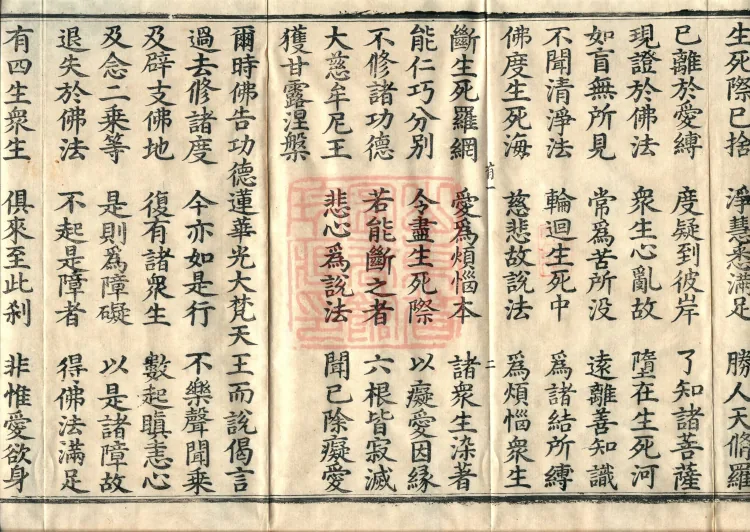 生死際已捨　淨慧悉滿足　勝人天脩羅
已離於愛縛　度疑到彼岸　了知諸菩薩
現證於佛法　衆生心亂故　墮在生死河
如盲無所見　常爲苦所没　遠離善知識
不聞清淨法　輪迴生死中　爲諸結所縛
佛度生死海　慈悲故説法　爲煩惱衆生
斷生死羅網　愛爲煩惱本　諸衆生染著
能仁巧分別　令盡生死際　以癡愛因緣
不修諸功德　若能斷之者　六根皆寂滅
大慈牟尼王　悲心爲説法　聞已除癡愛
獲甘露涅槃
爾時佛告功德蓮華光大梵天王而説偈言
過去修諸度　今亦如是行　不樂聲聞乘
及辟支佛地　復有諸衆生　數起瞋恚心
及念二乘等　是則爲障礙　以是諸障故
退失於佛法　不起是障者　得佛法滿足
有四生衆生　俱來至此刹　非惟愛欲身